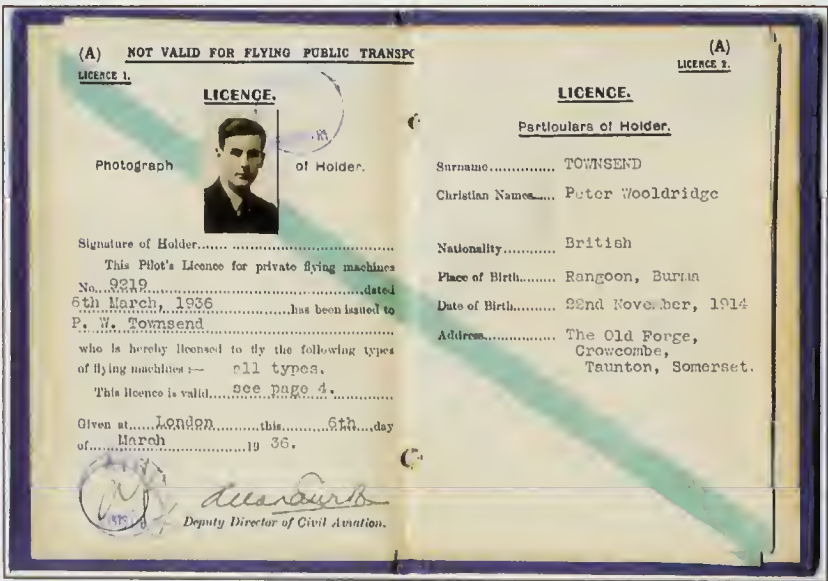 (A) NOT VALID FOR FLYING PUBLIC TRANSPO
LICENCE 1.
LICENCE.
Photograph of Holder.
Signature of Holder
This Pilot's Licence for private flying machines
No. 9219 dated
6th March, 1936 has been issued to
P. W. Townsend
who is hereby licensed to fly the following types
of flying machines :— all types.
This licence is valid see page 4.
Given at London this 6th day
of March 19 36.
Deputy Director of Civil Aviation.
(A)
LICENCE 2.
LICENCE.
Particulars of Holder.
Surname TOWNSEND
Christian Names Peter Wooldridge
Nationality British
Place of Birth Rangoon, Burma
Date of Birth 22nd November, 1914
Address The Old Forge,
Crowcombe,
Taunton, Somerset.